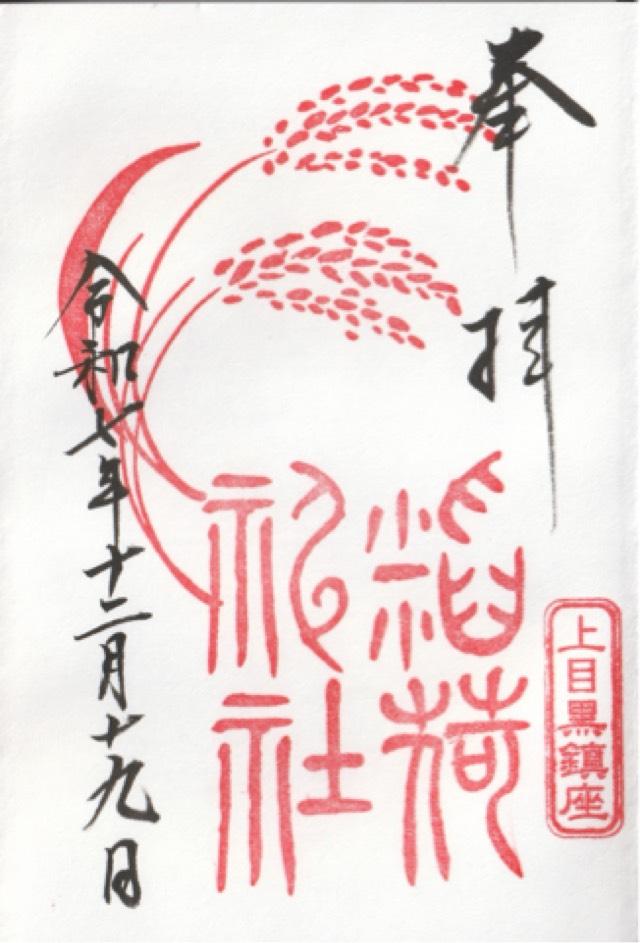 奉拝
上目黒鎮座
稲荷
神社
令和七年十二月十九日